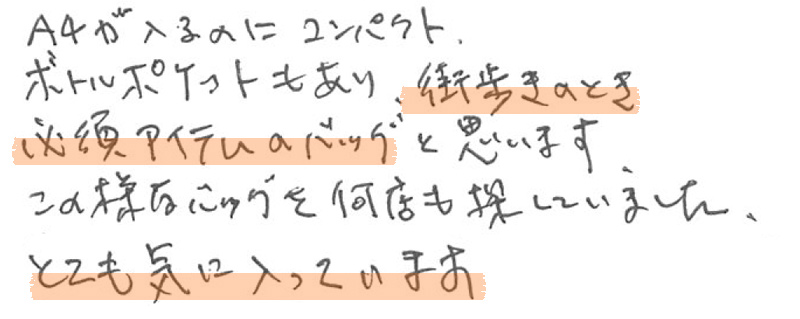 A4が入るのにコンパクト.
ボトルポケットもあり 街歩きのとき
必須アイテムのバッグと思います
この様なバッグを何店も探していました、
とても気に入っています